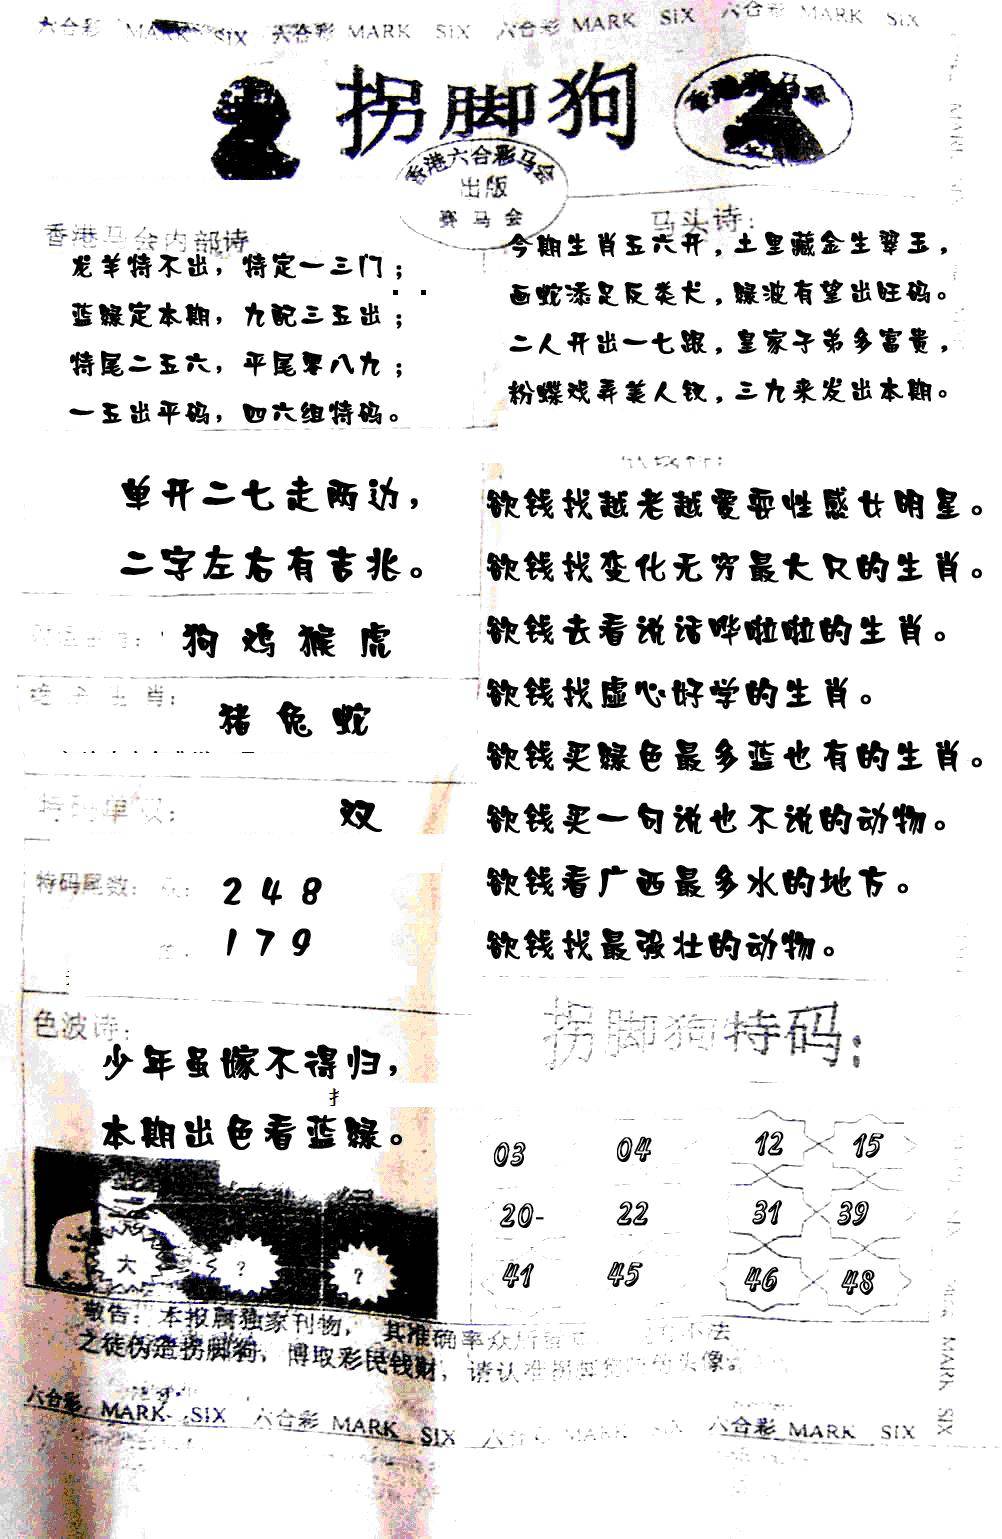 六合彩 MARK SIX 六合彩 MARK SIX 六合彩 MARK SIX 六合彩 MARK SIX
拐脚狗
香港赛马会
香港六合彩马会
出版
赛马会
香港马会内部诗
龙羊特不出，特定一三门；
蓝绿定本期，九配三五出；
特尾二五六，平尾零八九；
一五出平码，四六组特码。
马头诗：
今期生肖五六开，土里藏金生翠玉，
画蛇添足反类犬，绿波有望出旺码。
二人开出一七跟，皇家子弟多富贵，
粉蝶戏弄美人钗，三九来发出本期。
单开二七走两边，
二字左右有吉兆。
狗 鸡 猴 虎
生肖：
猪 兔 蛇
特码单双：
双
特码尾数：
2 4 8
1 7 9
色波诗：
少年虽嫁不得归，
扌
本期出色看蓝绿。
大 ? ?
欲钱找越老越爱耍性感女明星。
欲钱找变化无穷最大只的生肖。
欲钱去看说话哗啦啦的生肖。
欲钱找虚心好学的生肖。
欲钱买绿色最多蓝也有的生肖。
欲钱买一句说也不说的动物。
欲钱看广西最多水的地方。
欲钱找最强壮的动物。
拐脚狗特码：
03 04 12 15
20- 22 31 39
41 45 46 48
敬告：本报属独家刊物，其准确率众所 不法
之徒伪造拐脚狗，博取彩民钱财，请认准拐脚狗 头像。
六合彩 MARK SIX 六合彩 MARK SIX 六合 MARK SIX 六合彩 MARK SIX
MARK SIX